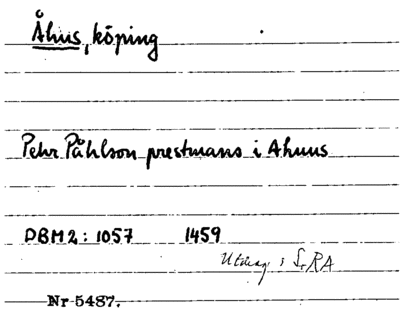 Åhus, köping
Pehr Påhlson prestmans i Ahuus
DBM2: 1057 1459
Utdrag i SvRA
Nr 5487.